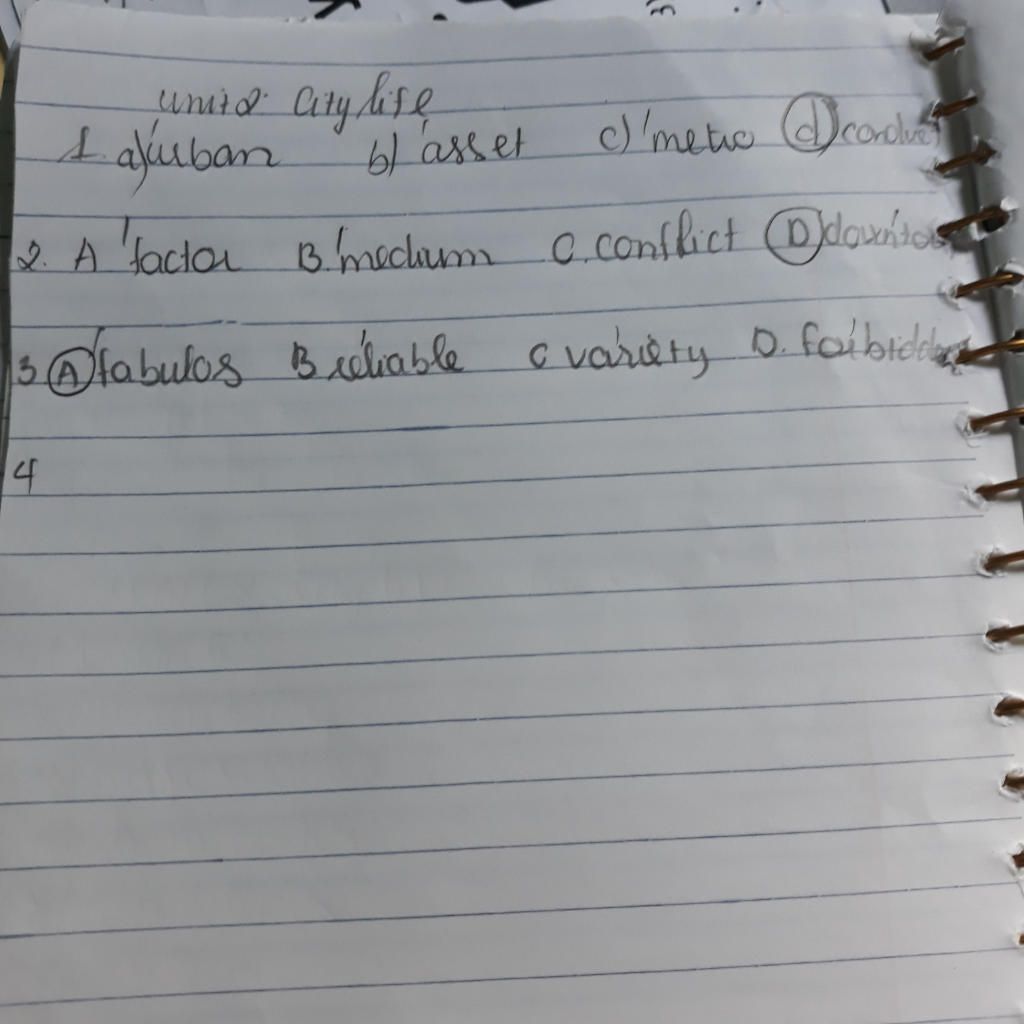 unit 2: City life
1. a) 'urban b) 'asset c) 'metro d) conduct
2. A 'factor B. 'medium C. conflict D down'to
3 A 'fabulos B re'liable C va'riety D. for'bidde
4